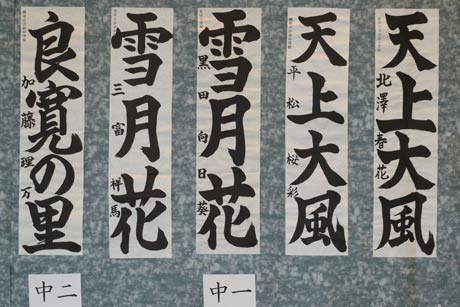 天上大風
北澤春花
天上大風
平松桜彩
雪月花
黒田向日葵
雪月花
三富祥馬
良寛の里
加藤理万
中一
中二